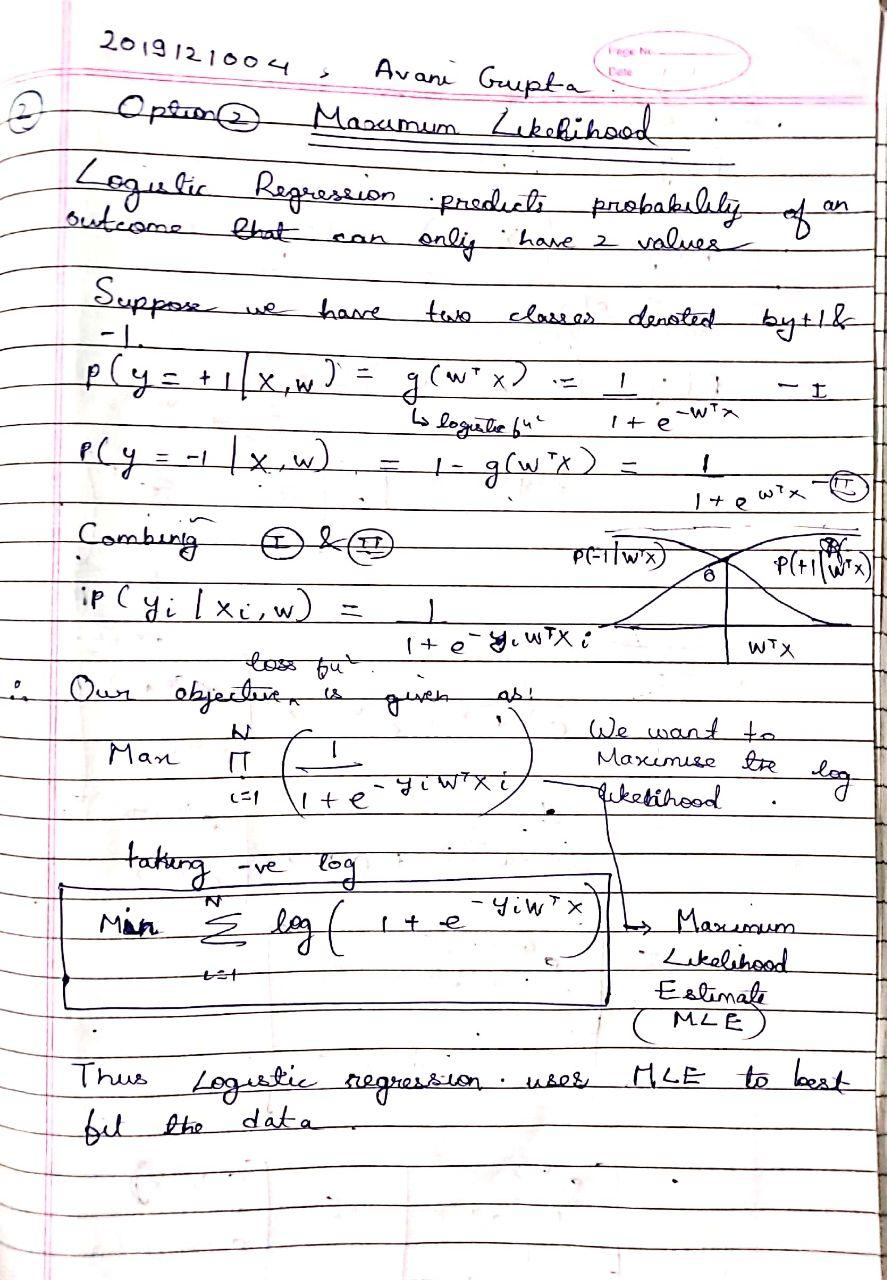 Page No.
Date
2019121004, Avani Gupta
② Option ② Maximum Likelihood
Logistic Regression predicts probability of an
outcome that can only have 2 values
Suppose we have two classes denoted by +1 &
-1.
P(y = +1 | X, w) = g(wᵀx) = 1 / (1 + e^(-wᵀx)) - I
↳ logistic fuⁿ
P(y = -1 | X, w) = 1 - g(wᵀx) = 1 / (1 + e^(wᵀx)) - II
Combining I & II
P(-1|wᵀx) θ P(+1|wᵀx)
wᵀx
P(yi | xi, w) = 1 / (1 + e^(-yi wᵀxi))
∴ Our objective loss fuⁿ is given as:
Max N Π i=1 (1 / (1 + e^(-yi wᵀxi)))
We want to
Maximise the log
likelihood.
taking -ve log
Min N Σ i=1 log(1 + e^(-yi wᵀx))
→ Maximum
Likelihood
Estimate
(MLE)
Thus Logistic regression uses MLE to best
fit the data.